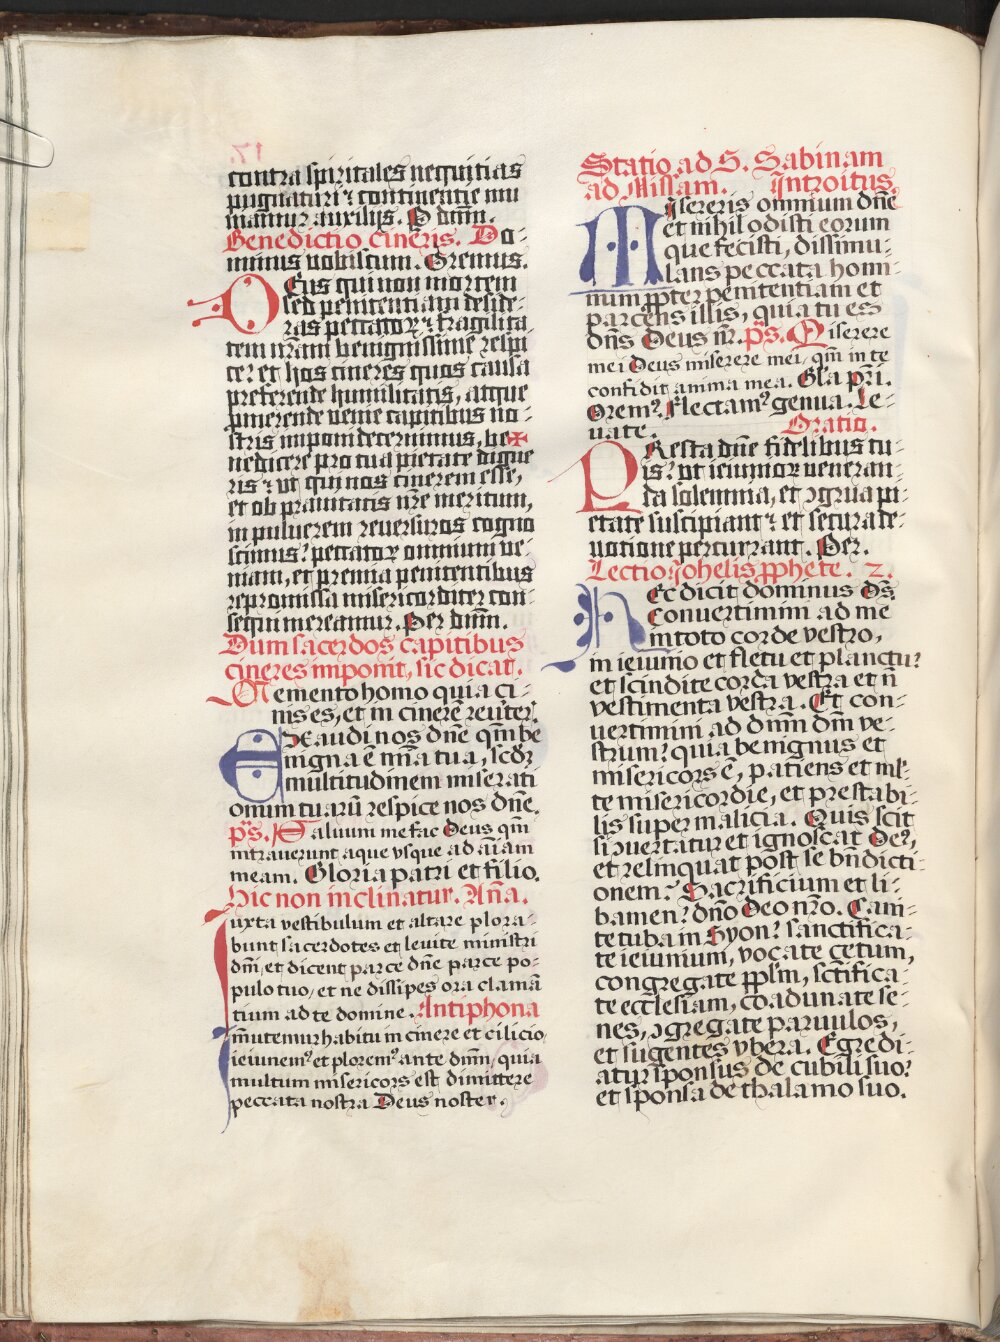 contra spiritales nequitias
pugnaturi ⁊ continentie mu
niamur auxilijs. P dnm̄.
Benedictio cineris. Do-
minus vobiscum. Oremus.
DEus qui non mortem
sed penitentiam deside-
ras peccatoꝝ ⁊ fragilita
tem nr̄am benignissime respi
ce? et hos cineres quos causa
preferende humilitatis, atque
pmerende venie capitibus no-
stris imponi decernimus, be✠
nedicere pro tua pietate digne
ris ⁊ vt qui nos cinerem esse,
et ob prauitatis nr̄e meritum,
in puluerem reuersuros cogno
scimus? peccatoꝝ omnium ve-
niam, et premia penitentibus
repromissa misericorditer con-
sequi mereamur. Per dnm̄.
Dum sacerdos capitibus
cineres imponit, sic dicat.
Memento homo quia ci-
nis es, et in cinerē reuter̄.
EXaudi nos dn̄e qm̄ be
nigna ē mīa tua, scdꝫ
multitudinem miserati
onum tuarū respice nos dn̄e.
p̄s. Saluum me fac Deus qm̄
intrauerunt aque vsque ad aīam
meam. Gloria patri et filio.
Hic non inclinatur. Añа.
Iuxta vestibulum et altare plora-
bunt sacerdotes et leuite ministri
dn̄i, et dicent parce dn̄e parce po-
pulo tuo, et ne dissipes ora clamā
tium ad te domine. Antiphona
Im̄utemur habitu in cinere et cilicio
ieiunemꝰ et ploremꝰ ante dnm̄, quia
multum misericors est dimittere
peccata nostra Deus noster.
Statio ad S. Sabinam
ad Missam. Introitus.
MIsereris omnium dn̄e
et nihil odisti eorum
que fecisti, dissimu-
lans peccata homi-
num ꝓpter penitentiam et
parcens illis, quia tu es
dn̄s Deus nr̄. p̄s. Miserere
mei Deus miserere mei, qm̄ in te
confidit anima mea. Gl̄a pr̄i.
Oremꝰ. Flectamꝰ genua. Le-
uate. Oratio.
PResta dn̄e fidelibus tu-
is? vt ieiunioꝝ veneran-
da solemnia, et ↄgrua pi-
etate suscipiant ⁊ et secura de-
uotione percurrant. Per.
Lectio Johelis ꝓphete. 2.
HEc dicit dominus Ds̄.
Conuertimini ad me
in toto corde vestro,
in ieiunio et fletu et planctu?
et scindite corda vestra et n̄
vestimenta vestra. Et con-
uertimini ad dnm̄ dm̄ ve-
strum? quia benignus et
misericors ē, patiens et ml̄-
te misericordie, et prestabi-
lis super malicia. Quis scit
si ↄuertatur et ignoscat Deꝰ,
et relinquat post se bn̄dicti-
onem? Sacrificium et li-
bamen? dn̄o Deo nr̄o. Cani-
te tuba in Syon? sanctifica-
te ieiunium, vocate cetum,
congregate ppl̄m, sc̄tifica-
te eccl̄esiam, coadunate se-
nes, ↄgregate paruulos,
et sugentes vbera. Egredi-
atur sponsus de cubili suo?
et sponsa de thalamo suo.